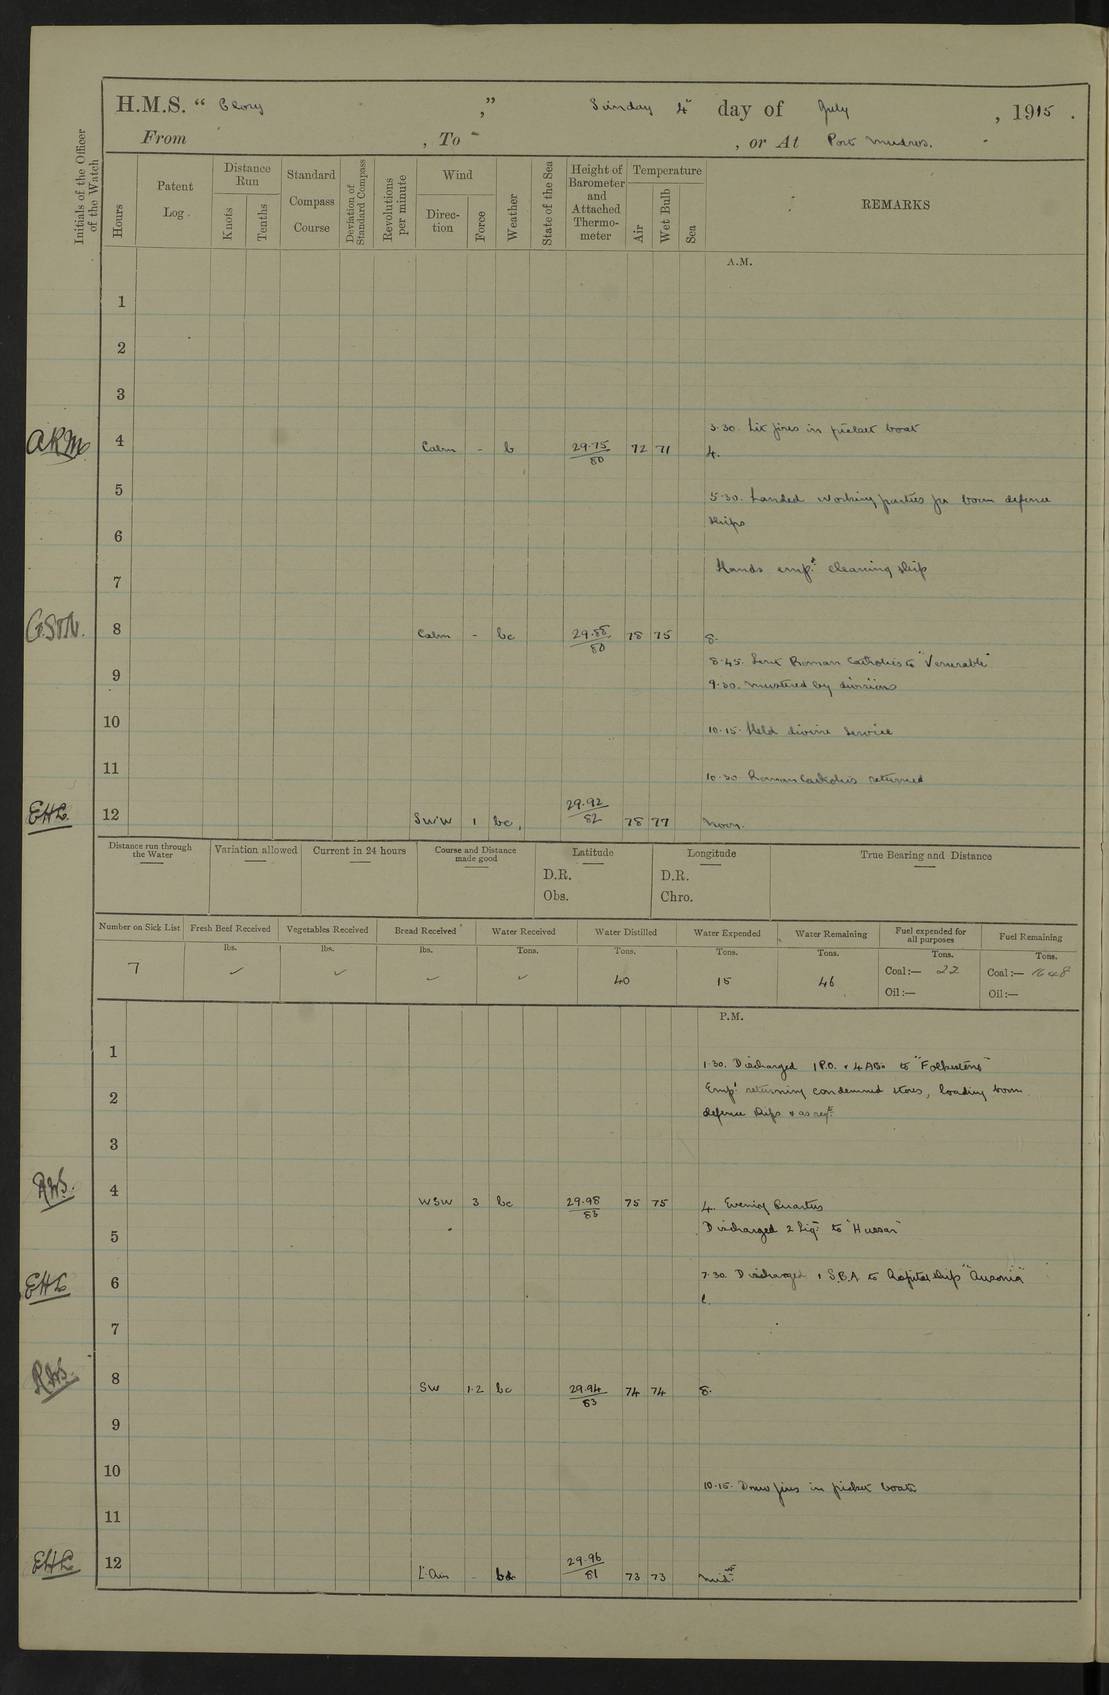 H.M.S. “ Glory ,” Sunday 4th day of July , 1915 .
From , To - , or At Port Mudros.
Initials of the Officer of the Watch
Hours
Patent Log.
Distance Run
Knots
Tenths
Standard Compass Course
Deviation of Standard Compass
Revolutions per minute
Wind
Direc-tion
Force
Weather
State of the Sea
Height of Barometer and Attached Thermo-meter
Temperature
Air
Wet Bulb
Sea
REMARKS
A.M.
1
2
3
3.30. Lit fires in picket boat
ARM 4 Calm - b 29.75/80 72 71 4.
5 5.30. Landed working parties for boom defence
ships
6
Hands empd cleaning ship
7
8 Calm - bc 29.88/80 78 75 8.
8.45. Sent Roman Catholics to "Venerable"
9 9.30. Mustered by divisions
10 10.15. Held divine service
11 10.30 Roman Catholics returned
EHL. 12 SW'W 1 bc, 29.92/82 78 77 Noon.
Distance run through the Water
Variation allowed
Current in 24 hours
Course and Distance made good
Latitude
D.R.
Obs.
Longitude
D.R.
Chro.
True Bearing and Distance
Number on Sick List
Fresh Beef Received
Vegetables Received
Bread Received
Water Received
Water Distilled
Water Expended
Water Remaining
Fuel expended for all purposes
Fuel Remaining
lbs. lbs. lbs. Tons. Tons. Tons. Tons. Tons. Tons.
7 ✓ ✓ ✓ ✓ 40 15 46 Coal:— 22 Coal:— 1648
Oil:— Oil:—
P.M.
1 1.30. Discharged 1 P.O. & 4 ABs to "Folkestone"
2 Empd returning condemned stores, loading boom
defence ships & as reqd.
3
RWS. 4 WSW 3 bc 29.98/83 75 75 4. Evening Quarters
5 Discharged 2 Sig. to "Hussar"
EHL 6 7.30. Discharged 1 S.B.A to Hospital Ship "Ausonia"
6.
7
RWS. 8 SW 1.2 bc 29.94/83 74 74 8.
9
10 10.15. Drew fires in picket boats
11
EHL 12 L. Airs - bc 29.96/81 73 73 Midt.